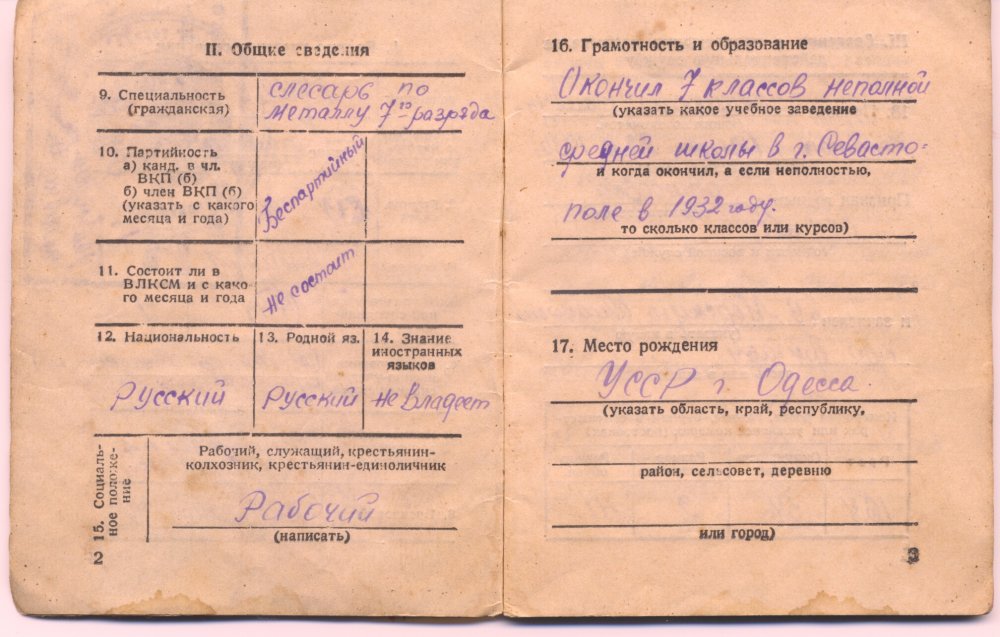 II. Общие сведения
9. Специальность
(гражданская)
слесарь по
металлу 7го разряда
10. Партийность
а) канд. в чл.
ВКП (б)
б) член ВКП (б)
(указать с какого
месяца и года)
Беспартийный
11. Состоит ли в
ВЛКСМ и с како
го месяца и года
не состоит
12. Национальность
Русский
13. Родной яз.
Русский
14. Знание
иностранных
языков
не владеет
15. Социаль-
ное положе-
ние
Рабочий, служащий, крестьянин-
колхозник, крестьянин-единоличник
Рабочий
(написать)
2
16. Грамотность и образование
Окончил 7 классов неполной
(указать какое учебное заведение
средней школы в г. Севасто-
и когда окончил, а если неполностью,
поле в 1932 году.
то сколько классов или курсов)
17. Место рождения
УССР г. Одесса.
(указать область, край, республику,
район, сельсовет, деревню
или город)
3